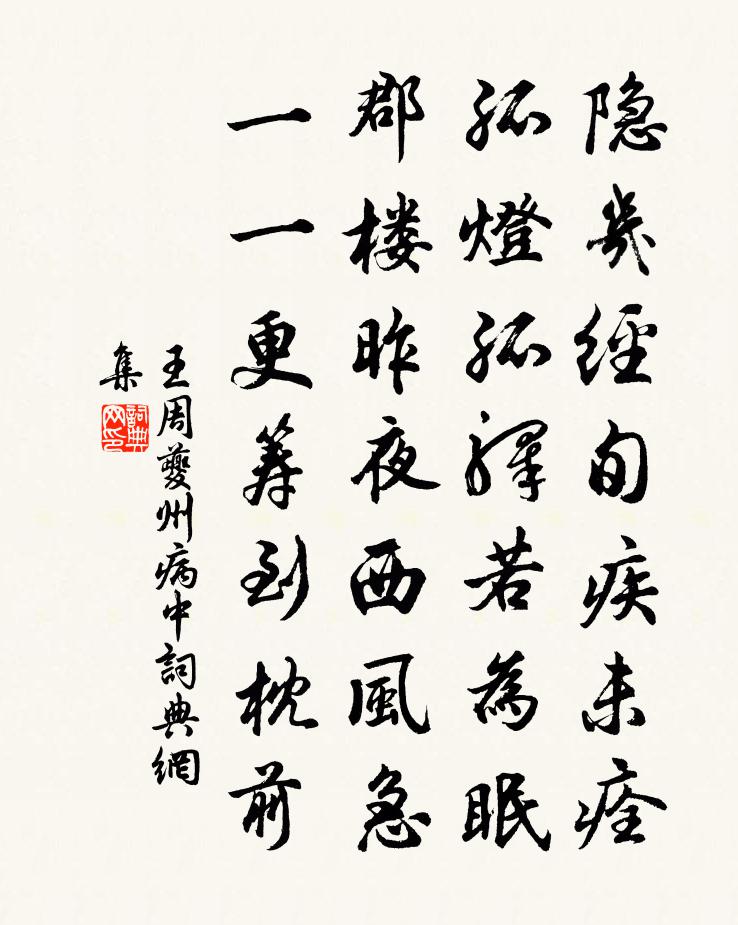 隐幾經旬疾未痊
孤燈孤驛若為眠
郡楼昨夜西風急
一一更筹到枕前
王周夔州病中詞典網
集
詞典
网印